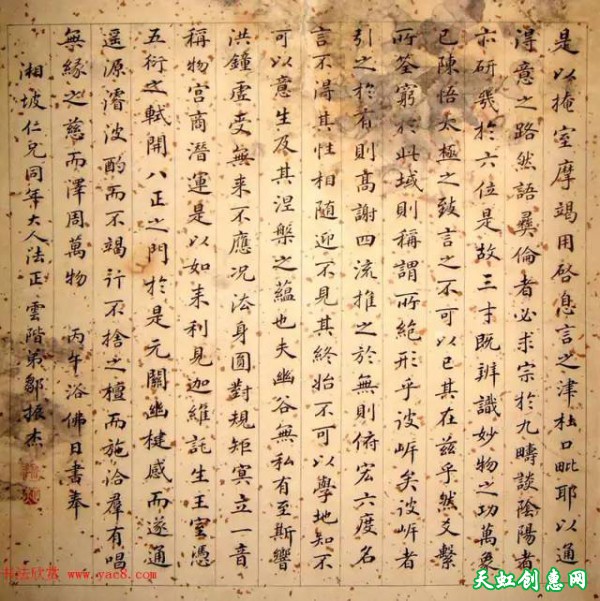 是以掩室摩竭用啓息言之津杜口毗耶以通
得意之路然語彝倫者必求宗於九疇談陰陽者
亦研幾於六位是故三才既辨識妙物之功萬象
已陳悟太極之致言之不可以已其在兹乎然爻繫
所筌窮於此域則稱謂所絶形乎彼岸矣彼岸者
引之於有則高謝四流推之於無則俯宏六度名
言不得其性相隨迎不見其終始不可以學地知不
可以意生及其涅槃之藴也夫幽谷無私有至斯響
洪鐘虛受無来不應况法身圓對規矩冥立一音
稱物宮商潛運是以如来利見迦維託生王室憑
五衍之軾開八正之門於是元關幽楗感而遂通
遥源濬波酌而不竭行不捨之檀而施洽羣有唱
無緣之慈而澤周萬物 丙午浴佛日書奉
湘坡仁兄同年大人法正雲階弟鄒振杰
书法欣赏 www.yac8.com
天虹创惠网